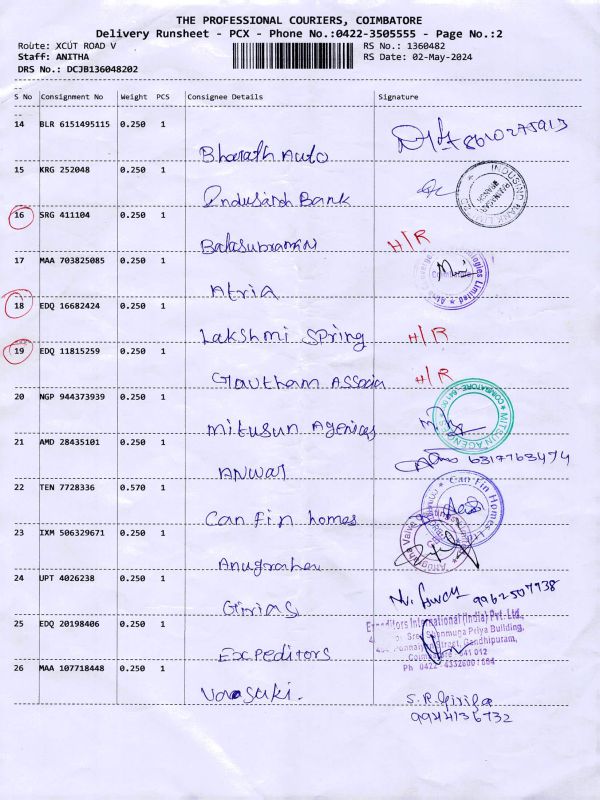 THE PROFESSIONAL COURIERS, COIMBATORE
Delivery Runsheet - PCX - Phone No.:0422-3505555 - Page No.:2
Route: XCUT ROAD V RS No.: 1360482
Staff: ANITHA RS Date: 02-May-2024
DRS No.: DCJB136048202
S No Consignment No Weight PCS Consignee Details Signature
14 BLR 6151495115 0.250 1
Bharath Auto 8610275913
15 KRG 252048 0.250 1
Indusind Bank INDUSIND BANK LTD
16 SRG 411104 0.250 1
Balasubramani H/R
17 MAA 703825085 0.250 1
Atria
18 EDQ 16682424 0.250 1
Lakshmi Spring H/R
19 EDQ 11815259 0.250 1
Gowtham Associa H/R
20 NGP 944373939 0.250 1
Mitusun Agencies MITSUN AGENCIES COIMBATORE
21 AMD 28435101 0.250 1
Anwar 6317763474
22 TEN 7728336 0.570 1
Can Fin homes Can Fin Homes Ltd
23 IXM 506329671 0.250 1
Anugraha
24 UPT 4026238 0.250 1
Girias 9962507938
25 EDQ 20198406 0.250 1
Expeditors Expeditors International (India) Pvt. Ltd.,
Shanmuga Priya Building,
Street, Gandhipuram,
Coimbatore 641 012
26 MAA 107718448 0.250 1
Vasuki. S.R.Girija
9944136732